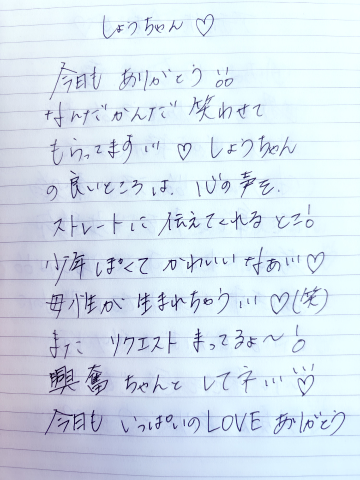 しょうちゃん ♡
今日も ありがとう !!
なんだかんだ 笑わせて
もらってます!!! ♡ しょうちゃん
の良いところは、心の声を、
ストレートに 伝えてくれるとこ!
少年ぽくて かわいいなぁ!!! ♡
母性が 生まれちゃう!!! ♡(笑)
また リクエスト まってるよ〜!
興奮 ちゃんと してネ!!! ♡
今日も いっぱいのLOVE ありがとう